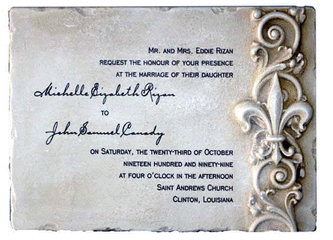 Mr. and Mrs. Eddie Rizan
request the honour of your presence
at the marriage of their daughter
Michelle Elizabeth Rizan
to
John Samuel Canady
on Saturday, the twenty-third of October
nineteen hundred and ninety-nine
at four o'clock in the afternoon
Saint Andrews Church
Clinton, Louisiana